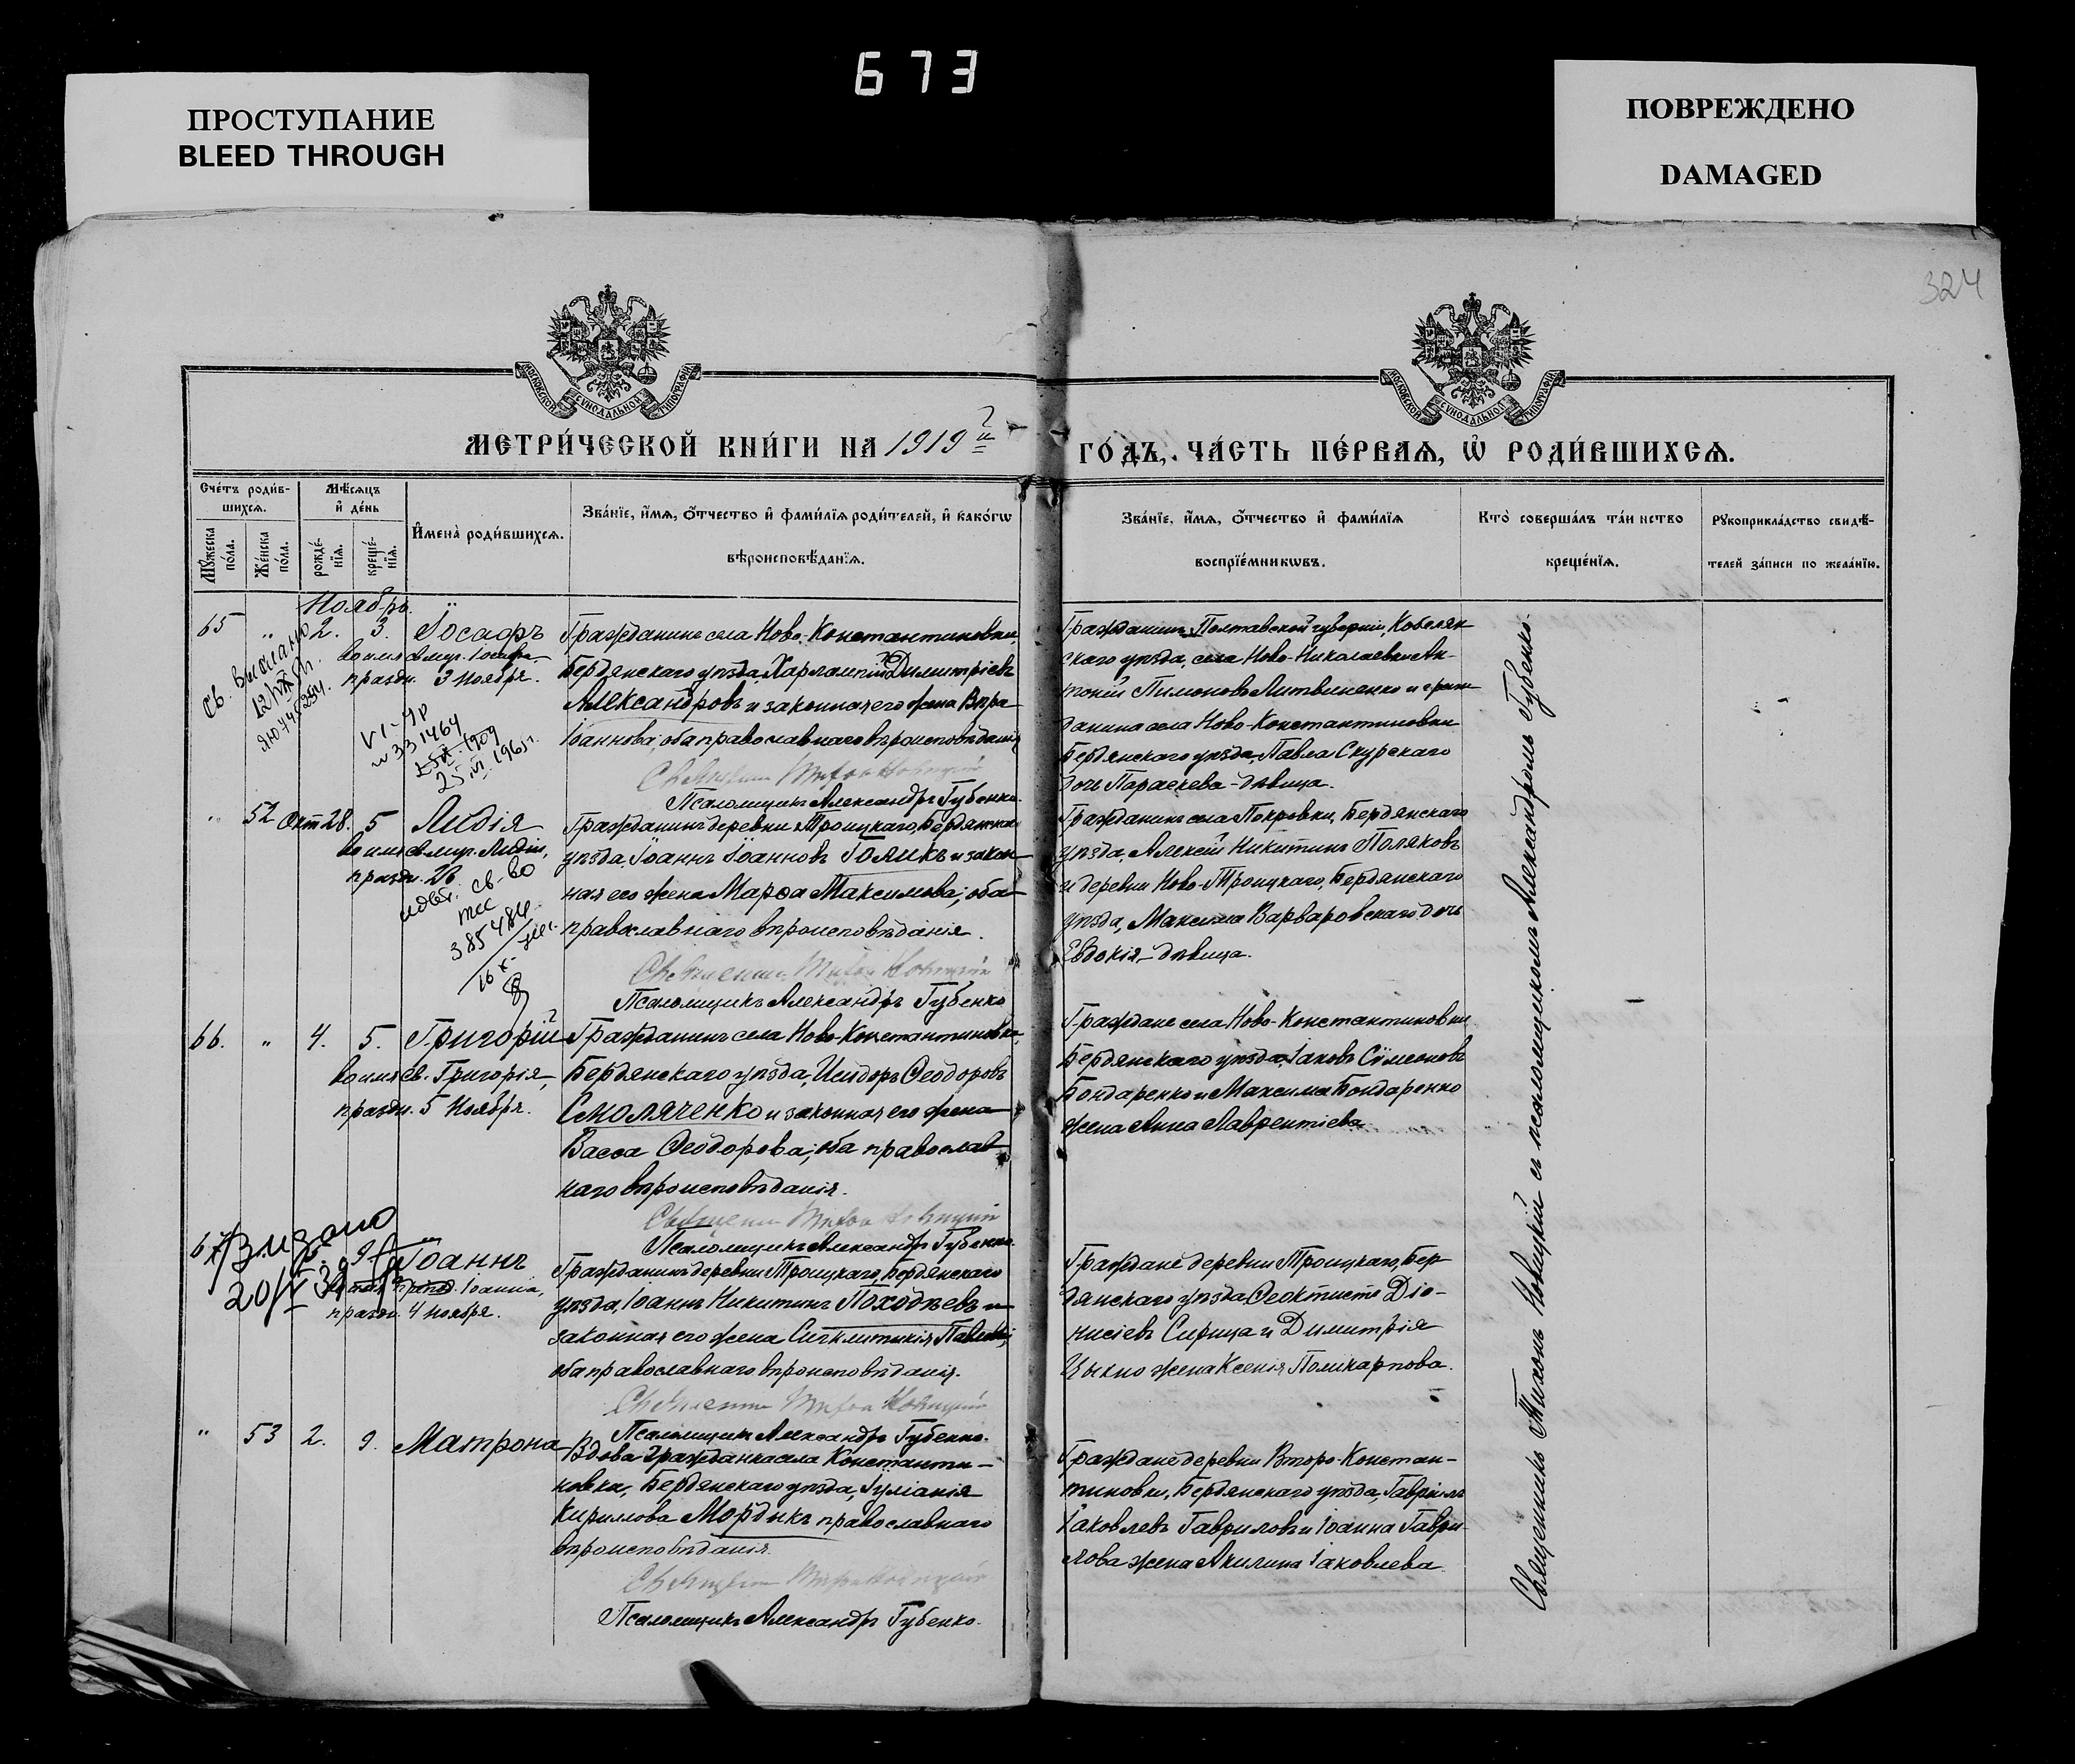 673
ПРОСТУПАНИЕ
BLEED THROUGH
ПОВРЕЖДЕНО
DAMAGED
324
МОСКОВСКОЙ СѴНОДАЛЬНОЙ ТИПОГРАФІИ
МОСКОВСКОЙ СѴНОДАЛЬНОЙ ТИПОГРАФІИ
МЕТРИ́ЧЕСКОЙ КНИ́ГИ НА 1919й ГО́ДЪ, ЧА́СТЬ ПЕ́РВАѦ, Ѽ РОДИ́ВШИХСѦ.
Сче́тъ роди́в-
шихсѧ.
Мѣ́сѧцъ
и҆ де́нь
Мꙋ́жеска
по́ла.
Же́нска
по́ла.
рожде́-
нїѧ.
креще́-
нїѧ.
И҆мена̀ роди́вшихсѧ.
Зва́нїе, и҆́мѧ, о҆́тчество и҆ фами́лїѧ роди́телей, и҆ како́гѡ
вѣроисповѣ́данїѧ.
Зва́нїе, и҆́мѧ, о҆́тчество и҆ фами́лїѧ
воспрїе́мникѡвъ.
Кто̀ соверша́лъ та́инство
креще́нїѧ.
Рꙋкоприкла́дство свидѣ́-
телей за́писи по жела́нїю.
Ноябрь.
65 " 2. 3. Іосафъ
во имя св. муч. Іосафа,
праздн. 3 Ноября.
Св. выслано
12/VIII
331464
25 VI 1965г.
Гражданинъ села Ново-Константиновки,
Бердянскаго уѣзда, Харлампій Димитріевъ
Александровъ и законная его жена Вѣра
Іоаннова, оба православнаго вѣроисповѣданія
Священникъ Тихонъ Новицкій
Псаломщикъ Александръ Губенко.
Гражданинъ Полтавской губерніи, Кобеляк-
скаго уѣзда, села Ново-Николаевки Ан-
тоній Пимоновъ Литвиненко и граж-
данина села Ново-Константиновки
Бердянскаго уѣзда, Павла Скурскаго
дочь Параскева - дѣвица.
" 52 Окт 28. 5 Лидія
во имя св. муч. Лидіи,
праздн. 26
св-во
385484
Гражданинъ деревни Троицкаго, Бердянскаго
уѣзда, Іоаннъ Іоанновъ Голикъ и закон-
ная его жена Марѳа Максимова; оба
православнаго вѣроисповѣданія.
Священникъ Тихонъ Новицкій
Псаломщикъ Александръ Губенко
Гражданинъ села Покровки, Бердянскаго
уѣзда, Алексій Никитинъ Поляковъ
и деревни Ново-Троицкаго, Бердянскаго
уѣзда, Максима Варваровскаго дочь
Евдокія - дѣвица.
66. " 4. 5. Григорій
во имя св. Григорія,
праздн. 5 Ноября.
Гражданинъ села Ново-Константиновки,
Бердянскаго уѣзда, Исидоръ Ѳеодоровъ
Смоляченко и законная его жена
Васса Ѳеодорова; оба православ-
наго вѣроисповѣданія.
Священникъ Тихонъ Новицкій
Псаломщикъ Александръ Губенко.
Граждане села Ново-Константиновки
Бердянскаго уѣзда, Іаковъ Сѵмеоновъ
Бондаренко и Максима Бондаренко
жена Анна Лаврентіева
67 9 Іоаннъ
Іоанна,
праздн. 4 ноября.
Выдано
20/V 39
Гражданинъ деревни Троицкаго, Бердянскаго
уѣзда, Іоаннъ Никитинъ Походѣевъ и
законная его жена Сигклитикія Павлова;
оба православнаго вѣроисповѣданія.
Священникъ Тихонъ Новицкій
Псаломщикъ Александръ Губенко.
Граждане деревни Троицкаго, Бер-
дянскаго уѣзда, Ѳеоктистъ Діо-
нисіевъ Сирица и Димитрія
Цыкно жена Ксенія Поликарпова.
" 53 2. 9. Матрона
Вдова гражданка села Константи-
новки, Бердянскаго уѣзда, Іуліанія
Кирилова Мордыкъ православнаго
вѣроисповѣданія.
Священникъ Тихонъ Новицкій
Псаломщикъ Александръ Губенко.
Граждане деревни Второ-Констан-
тиновки, Бердянскаго уѣзда, Гавріилъ
Іаковлевъ Гавриловъ и Іоанна Гаври-
лова жена Акилина Іаковлева.
Священникъ Тихонъ Новицкій съ псаломщикомъ Александромъ Губенко.